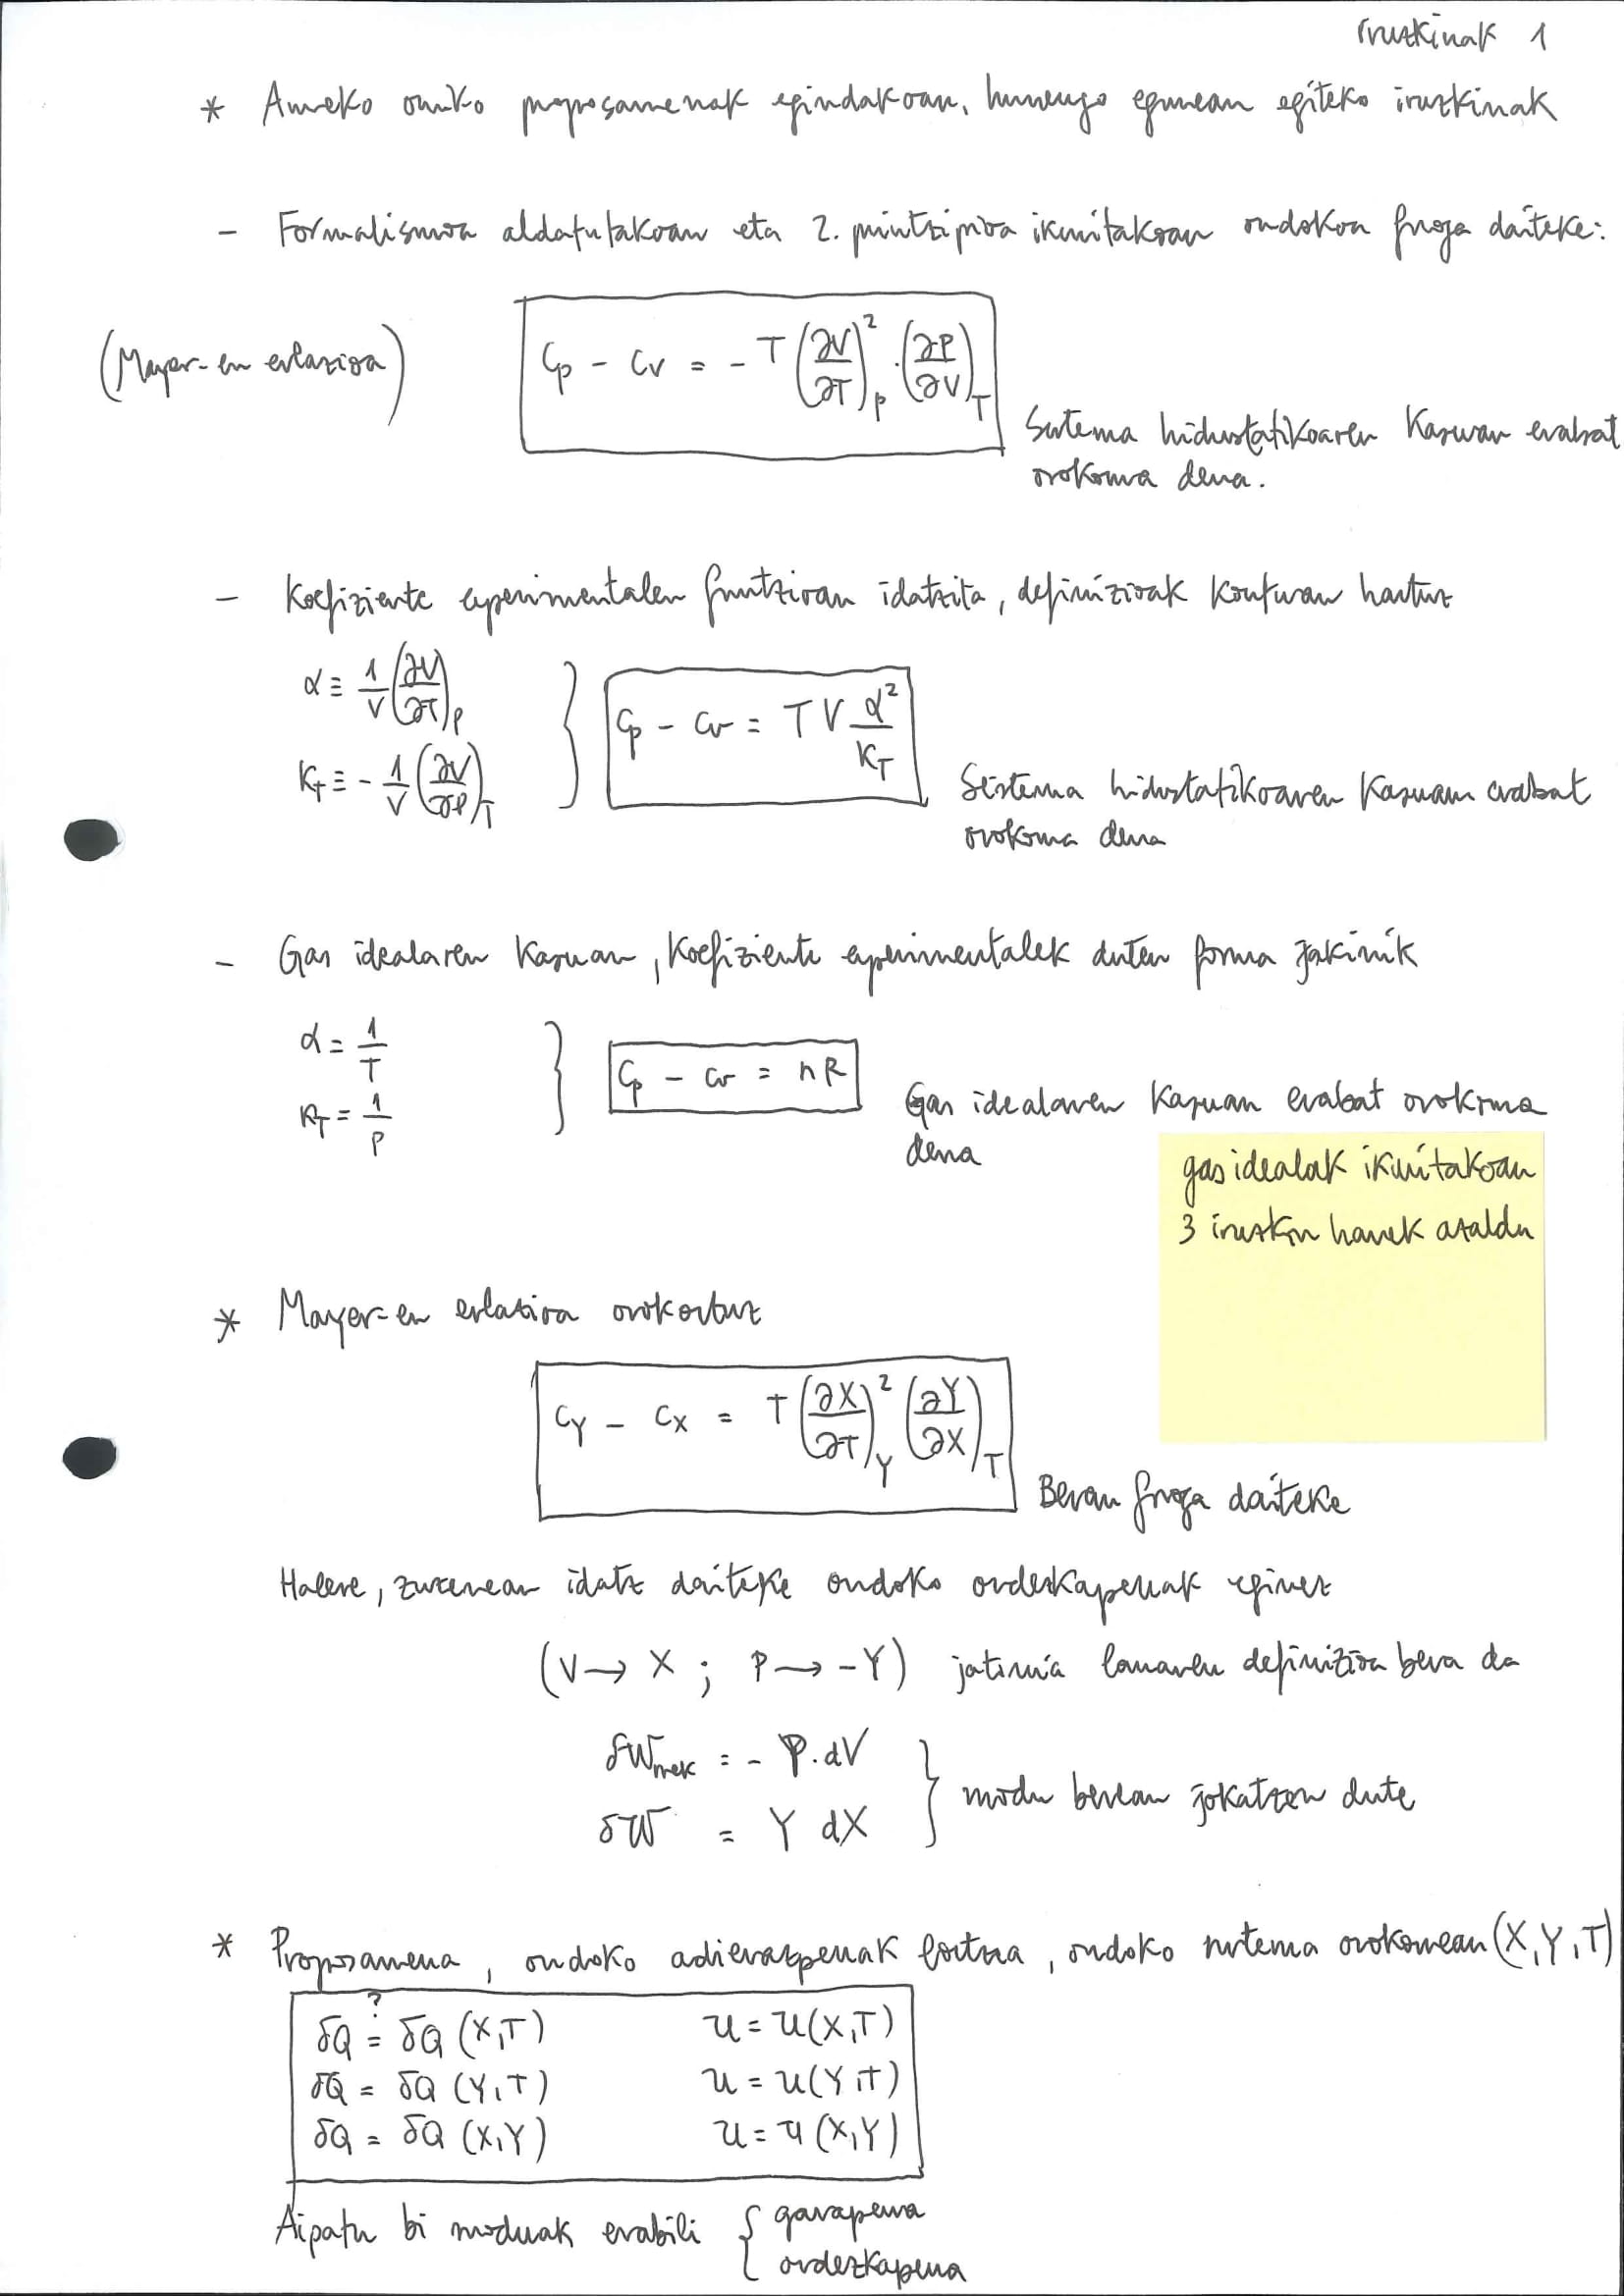 iruzkinak 1
* Aurreko orriko proposamenak egindakoan, hurrengo egunean egiteko iruzkinak
- Formalismoa aldatutakoan eta 2. printzipioa ikusitakoan ondokoa froga daiteke:
(Mayer-en erlazioa)
Cp - Cv = - T (∂V/∂T)²_P · (∂P/∂V)_T
Sistema hidrostatikoaren kasuan erabat
orokorra dena.
- Koefiziente esperimentalen funtzioan idatzita, definizioak kontuan hartuz
α ≡ 1/V (∂V/∂T)_P
K_T ≡ - 1/V (∂V/∂P)_T
}
Cp - Cv = T V α²/K_T
Sistema hidrostatikoaren kasuan erabat
orokorra dena
- Gas idealaren kasuan, koefiziente esperimentalek duten forma jakinik
α = 1/T
K_T = 1/P
}
Cp - Cv = nR
Gas idealaren kasuan erabat orokorra
dena
gas idealak ikusitakoan
3 iruzkin hauek azaldu
* Mayer-en erlazioa orokortuz
C_Y - C_X = T (∂X/∂T)²_Y (∂Y/∂X)_T
Beran froga daiteke
Halere, zuzenean idatz daiteke ondoko ordezkapenak eginez
(V → X ; P → -Y) jatorria lanaren definizioa bera da
δW_mek = - P. dV
δW = Y dX
} modu berean jokatzen dute
* Proposamena, ondoko adierazpenak lortzea, ondoko sistema orokorrean (X, Y, T)
?
δQ = δQ (X,T) U = U(X,T)
δQ = δQ (Y,T) U = U(Y,T)
δQ = δQ (X,Y) U = U(X,Y)
Aipatu bi moduak erabili { garapena
ordezkapena